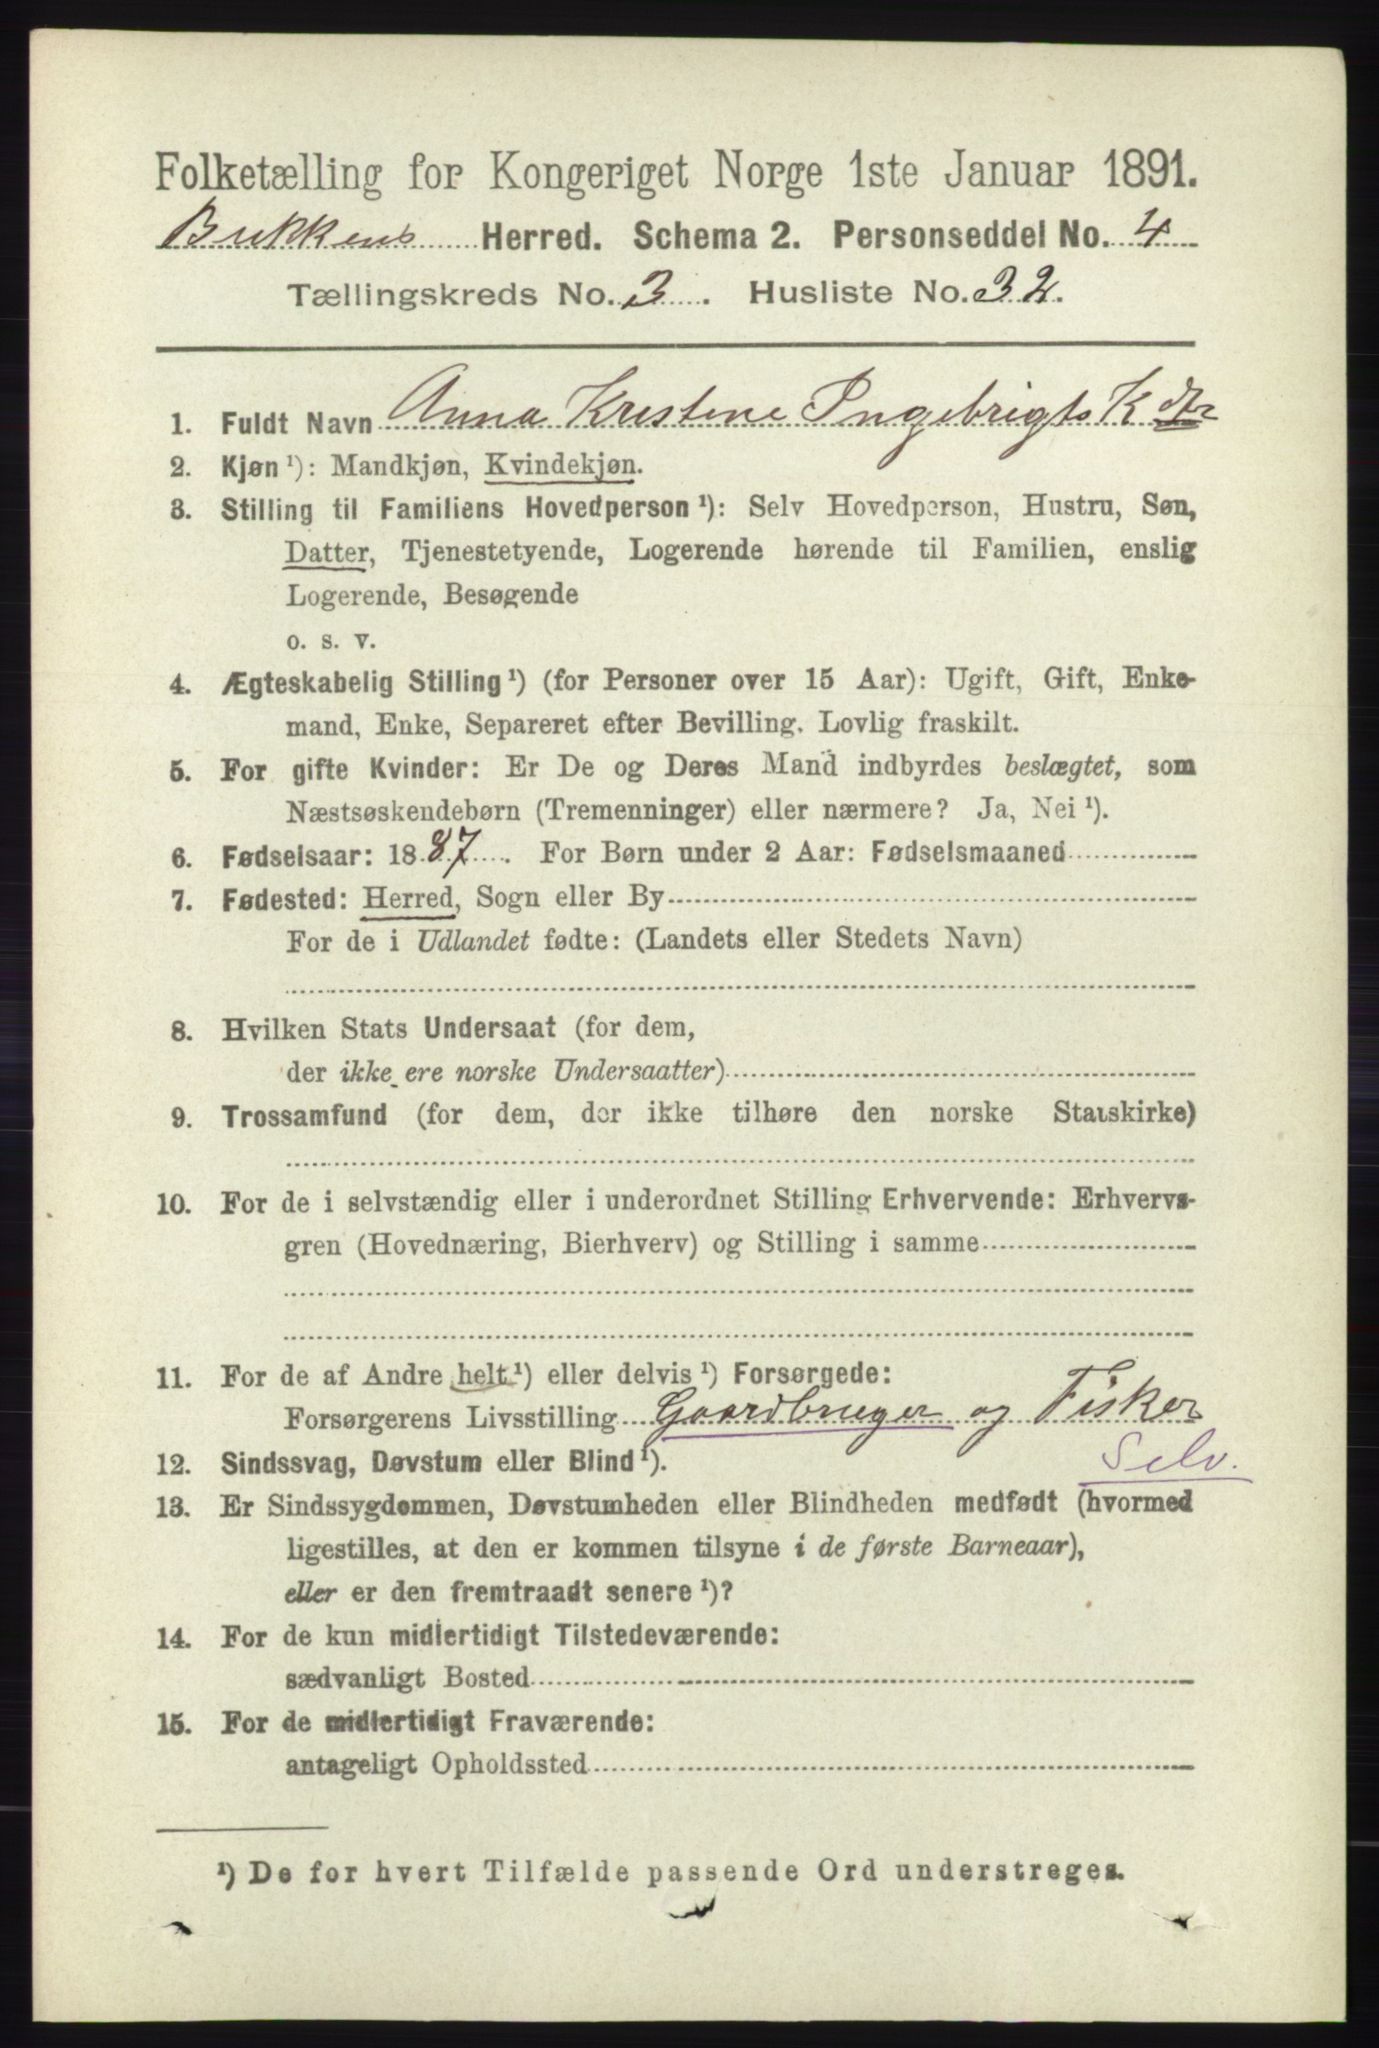 Folketælling for Kongeriget Norge 1ste Januar 1891.
Bukkens Herred. Schema 2. Personseddel No. 4
Tællingskreds No. 3. Husliste No. 32.
1. Fuldt Navn Anna Kristine Ingebrigts K dtr
2. Kjøn¹): Mandkjøn, Kvindekjøn.
3. Stilling til Familiens Hovedperson¹): Selv Hovedperson, Hustru, Søn,
Datter, Tjenestetyende, Logerende hørende til Familien, enslig
Logerende, Besøgende
o. s. v.
4. Ægteskabelig Stilling¹) (for Personer over 15 Aar): Ugift, Gift, Enke-
mand, Enke, Separeret efter Bevilling. Lovlig fraskilt.
5. For gifte Kvinder: Er De og Deres Mand indbyrdes beslægtet, som
Næstsøskendebørn (Tremenninger) eller nærmere? Ja, Nei¹).
6. Fødselsaar: 1887. For Børn under 2 Aar: Fødselsmaaned
7. Fødested: Herred, Sogn eller By
For de i Udlandet fødte: (Landets eller Stedets Navn)
8. Hvilken Stats Undersaat (for dem,
der ikke ere norske Undersaatter)
9. Trossamfund (for dem, der ikke tilhøre den norske Statskirke)
10. For de i selvstændig eller i underordnet Stilling Erhvervende: Erhvervs-
gren (Hovednæring, Bierhverv) og Stilling i samme
11. For de af Andre helt¹) eller delvis¹) Forsørgede:
Forsørgerens Livsstilling Gaardbruger og Fisker
Selv.
12. Sindssvag, Døvstum eller Blind¹).
13. Er Sindssygdommen, Døvstumheden eller Blindheden medfødt (hvormed
ligestilles, at den er kommen tilsyne i de første Barneaar),
eller er den fremtraadt senere¹)?
14. For de kun midlertidigt Tilstedeværende:
sædvanligt Bosted
15. For de midlertidigt Fraværende:
antageligt Opholdssted
¹) De for hvert Tilfælde passende Ord understreges.